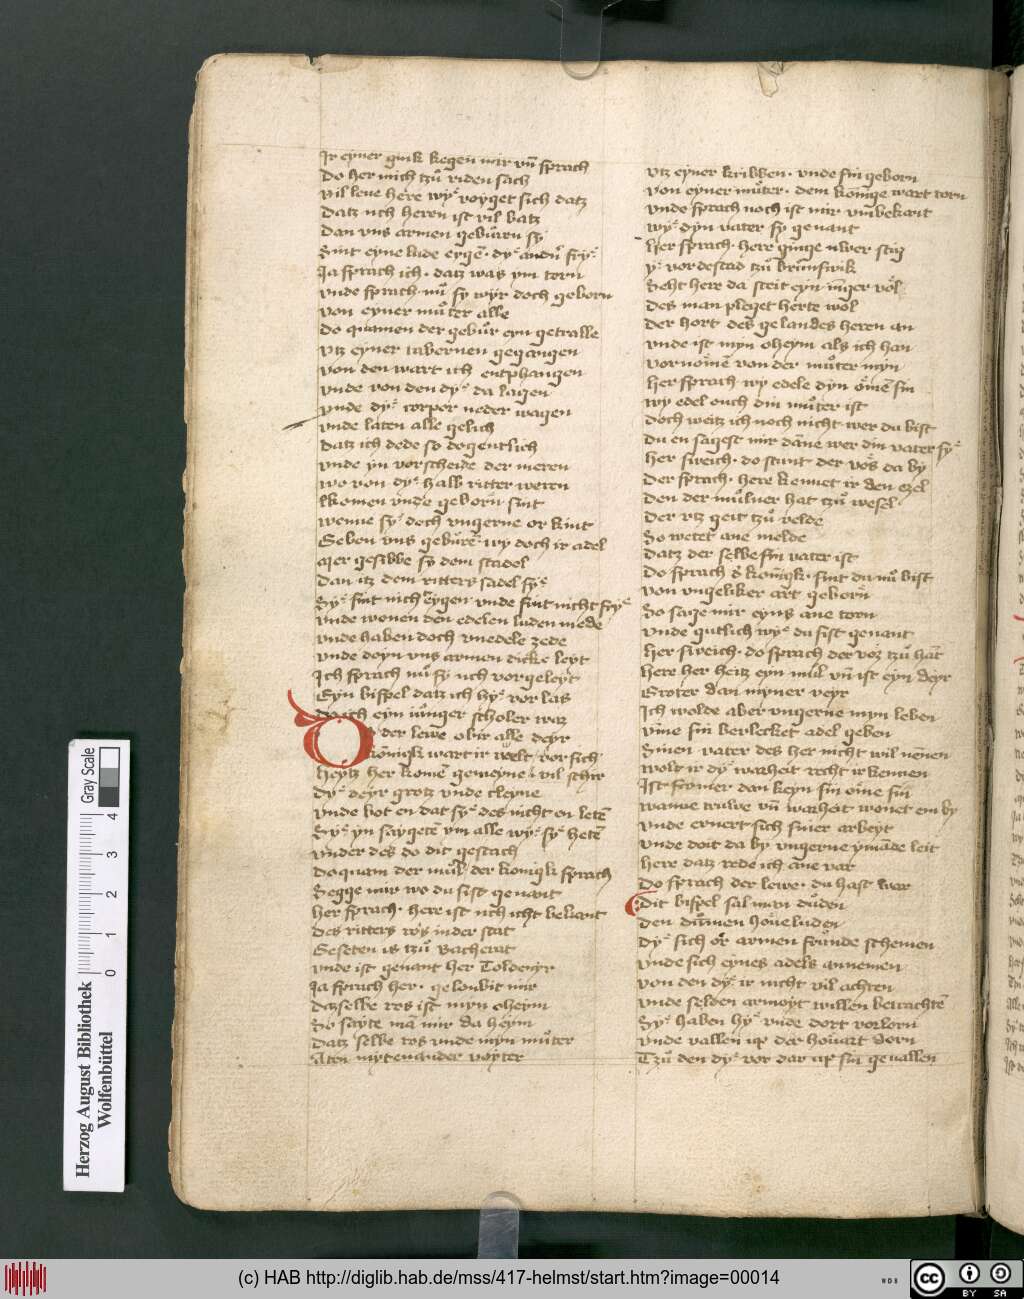 Ir eyner gink kegen mir vn̄ sprach
Do her mich tzů riden sach
Vil leue here wyͤ voyget sich datz
Datz uch heren ist vil batz
Dan vns armen gebůren sy
Sint eyne lude eygē dyͤ andn̄ fryͤ
Ia sprach ich datz was ym torn
vnde sprach nů sy wyr doch geborn
von eyner můter alle
do quamen der gebůr eyn getralle
vtz eyner tabernen gegangen
von den wart ich entphangen
vnde von den dyͤ da lagen
vnde dyͤ corper neder wagen
vnde laten alle gelich
datz ich dede so dogentlich
vnde yn vorscheide der meren
wo von dyͤ halb ritter weren
komen vnde geborn sint
wenne syͤ doch vngerne or kint
Geben vns gebůrē wy doch ir adel
Mer gesibbe sy dem stadel
Dan itz dem ritters sadel syͤ
Syͤ sint nich eygen vnde sint nicht fryͤ
vnde wonen den edelen luden mede
vnde haben doch vnedele zede
vnde doyn vns armen dicke leyt
Ich sprach nů sy uch vorgeleyt
Eyn bispel datz ich hyͤ vor las
do ich eyn iůnger scholer waz
Do der lewe obir alle deyr
kōnigk wart ir welt vor sich
heytz her komē gemeyne vil schir
dyͤ deyr grotz vnde cleyne
vnde bot en dat syͤ des nicht en letē
Syͤ yn saygetē ym alle wyͤ syͤ hetē
vnder des do dit geschach
do quam der můl der konigk sprach
Segge mir wo du sist genant
her sprach here ist uch icht bekant
des ritters ros in der stat
Geseten is tzů Bacherat
vnde ist genant her Toldenyr
Ia sprach her geloubit mir
datzselbe ros ist myn oheym
So sayte mā mir da heym
datz selbe ros vnde myn můter
Aten mytenander voyter
vtz eyner kribben vnde sin geborn
von eyner můter dem konige wart torn
vnde sprach noch ist mir vmbekant
wyͤ dyn vater sy genant
her sprach here ginge uwer stig
yͤ vor de stad tzů brůnswik
Seht here da steit eyn iůger vol
des man pleget herte wol
der hort des gelandes heren an
vnde ist myn oheym als ich han
vornomē von der můter myn
her sprach wy edele dyn omē sin
wy edel ouch din můter ist
doch weitz ich noch nicht wer du bist
du en sagest mir dāne wer din vater syͤ
her sweich do stunt der vos da by
der sprach here kennet ir den ezel
den der můlner hat tzů wesel
der vtz geit tzů velde
So wetet ane melde
datz der selbe sin vater ist
do sprach d̓ konigk sint du nů bist
von vngeliker art geborn
So sage mir eyns ane torn
vnde gutlich wyͤ du sist genant
her sweich do sprach der voz tzů hāt
here her heitz eyn můl vn̄ ist eyn deyr
Groter dan myner veyr
Ich wolde aber vngerne myn leben
vm̄e sin bevlecket adel geben
Sinen vater des her nicht wil nēnen
wolt ir dyͤ warheit recht irkennen
Ist fromer dan keyn sin ome sin
wanne truwe vn̄ warheit wonet em by
vnde ernert sich siner arbeyt
vnde doit da by vngerne ymāde leit
here datz rede ich ane var
do sprach der lewe du hast war
dit bispel sal man duden
den dummen houeluden
dyͤ sich or armen frunde schemen
vnde sich eynes adels annemen
von den dyͤ ir nicht vil achten
vnde selden armoyt willen betrachtē
Syͤ haben hyͤ vnde dort vorlorn
vnde vallen up der houart dorn
Tzů den dyͤ vor dar up sin geuallen
Gray Scale
0 1 2 3 4
Herzog August Bibliothek
Wolfenbüttel
(c) HAB http://diglib.hab.de/mss/417-helmst/start.htm?image=00014
WDB
cc BY SA